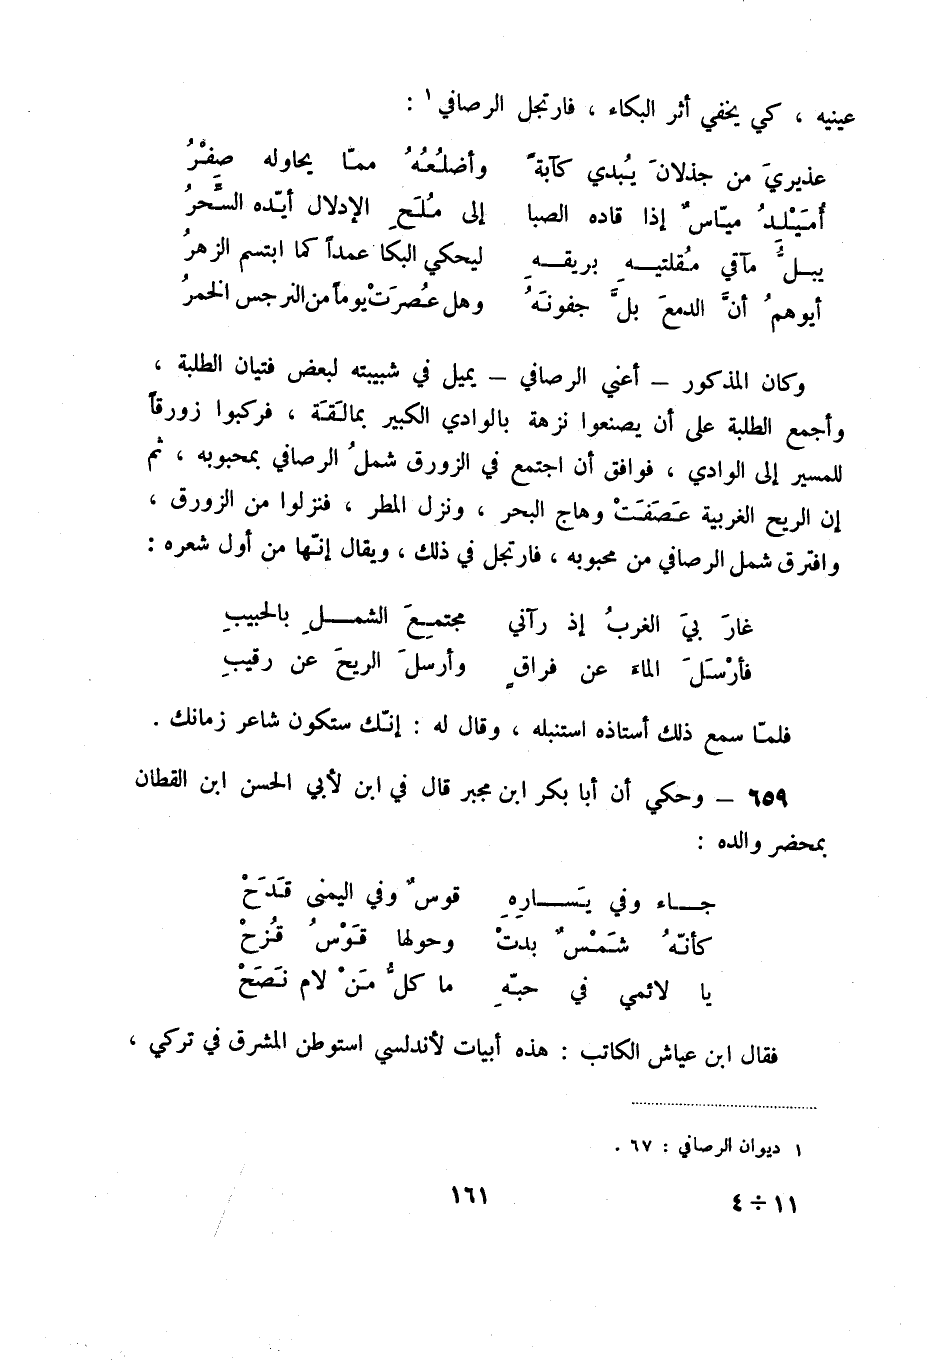 عينيه ، كي يخفي أثر البكاء ، فارتجل الرصافي١ :
عذيريَ من جذلانَ يُبدي كآبةً وأضلُعُهُ ممّا يحاوله صِفْرُ
أُمَيْلِدُ ميّاسٌ إذا قاده الصبا إلى مُلَحِ الإدلال أيّده السَّحرُ
يبلُّ مآقي مُقلتيهِ بريقهِ ليحكي البكا عمداً كما ابتسم الزهرُ
أيوهمُ أنَّ الدمعَ بلَّ جفونَهُ وهل عُصرَتْ يوماً من النرجس الخمرُ
وكان المذكور – أعني الرصافي – يميل في شبيبته لبعض فتيان الطلبة ،
وأجمع الطلبة على أن يصنعوا نزهة بالوادي الكبير بمالَقَة ، فركبوا زورقاً
للمسير إلى الوادي ، فوافق أن اجتمع في الزورق شملُ الرصافي بمحبوبه ، ثم
إن الريح الغربية عَصَفَتْ وهاج البحر ، ونزل المطر ، فنزلوا من الزورق ،
وافترق شمل الرصافي من محبوبه ، فارتجل في ذلك ، ويقال إنّها من أول شعره :
غارَ بيَ الغربُ إذ رآني مجتمِعَ الشملِ بالحبيبِ
فأرْسَلَ الماءَ عن فراقٍ وأرسلَ الريحَ عن رقيبِ
فلمّا سمع ذلك أستاذه استنبله ، وقال له : إنّك ستكون شاعر زمانك .
٦٥٩ – وحكي أن أبا بكر ابن مجبر قال في ابن لأبي الحسن ابن القطان
بمحضر والده :
جاء وفي يَسارِهِ قوسٌ وفي اليمنى قَدَحْ
كأنّهُ شَمْسٌ بدتْ وحولها قَوْسُ قُزحْ
يا لائمي في حبّهِ ما كلُّ مَنْ لام نَصَحْ
فقال ابن عياش الكاتب : هذه أبيات لأندلسي استوطن المشرق في تركي ،
١ ديوان الرصافي : ٦٧ .
١١ ÷ ٤ ١٦١